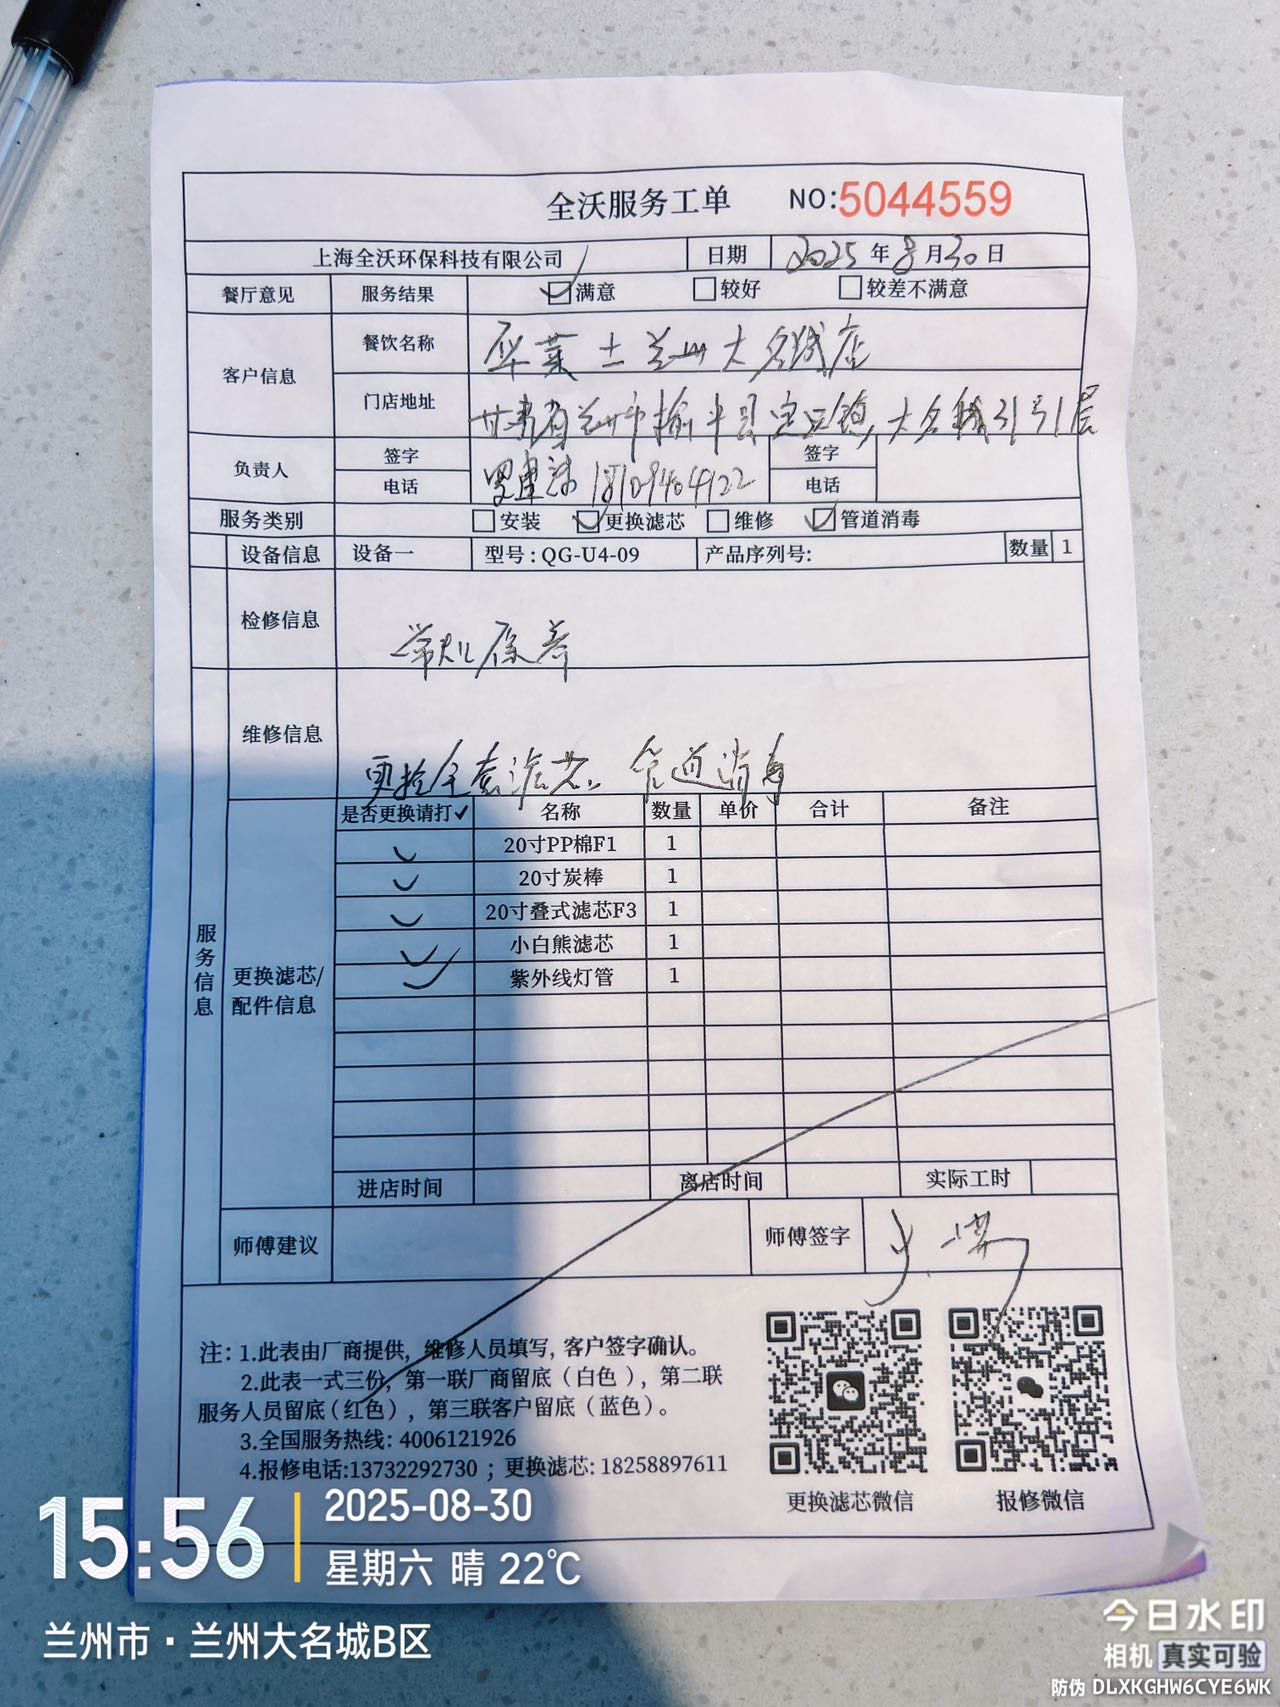 全沃服务工单 NO:5044559
上海全沃环保科技有限公司 日期 2025年8月30日
餐厅意见 服务结果 满意 较好 较差不满意
客户信息 餐饮名称 华莱士兰州大名城店
门店地址 甘肃省兰州市榆中县定远镇大名城31号1层
负责人 签字 签字
电话 18109404122 电话
服务类别 安装 更换滤芯 维修 管道消毒
设备信息 设备一 型号:QG-U4-09 产品序列号: 数量 1
检修信息 常规保养
维修信息 更换全套滤芯。管道消毒
服务信息
更换滤芯/配件信息
是否更换请打✓ 名称 数量 单价 合计 备注
✓ 20寸PP棉F1 1
✓ 20寸炭棒 1
✓ 20寸叠式滤芯F3 1
✓ 小白熊滤芯 1
✓ 紫外线灯管 1
进店时间 离店时间 实际工时
师傅建议 师傅签字
注:1.此表由厂商提供,维修人员填写,客户签字确认。
2.此表一式三份,第一联厂商留底(白色),第二联
服务人员留底(红色),第三联客户留底(蓝色)。
3.全国服务热线:4006121926
4.报修电话:13732292730;更换滤芯:18258897611
更换滤芯微信 报修微信
15:56 2025-08-30
星期六 晴 22℃
兰州市·兰州大名城B区
今日水印
相机 真实可验
防伪 DLXKGHW6CYE6WK